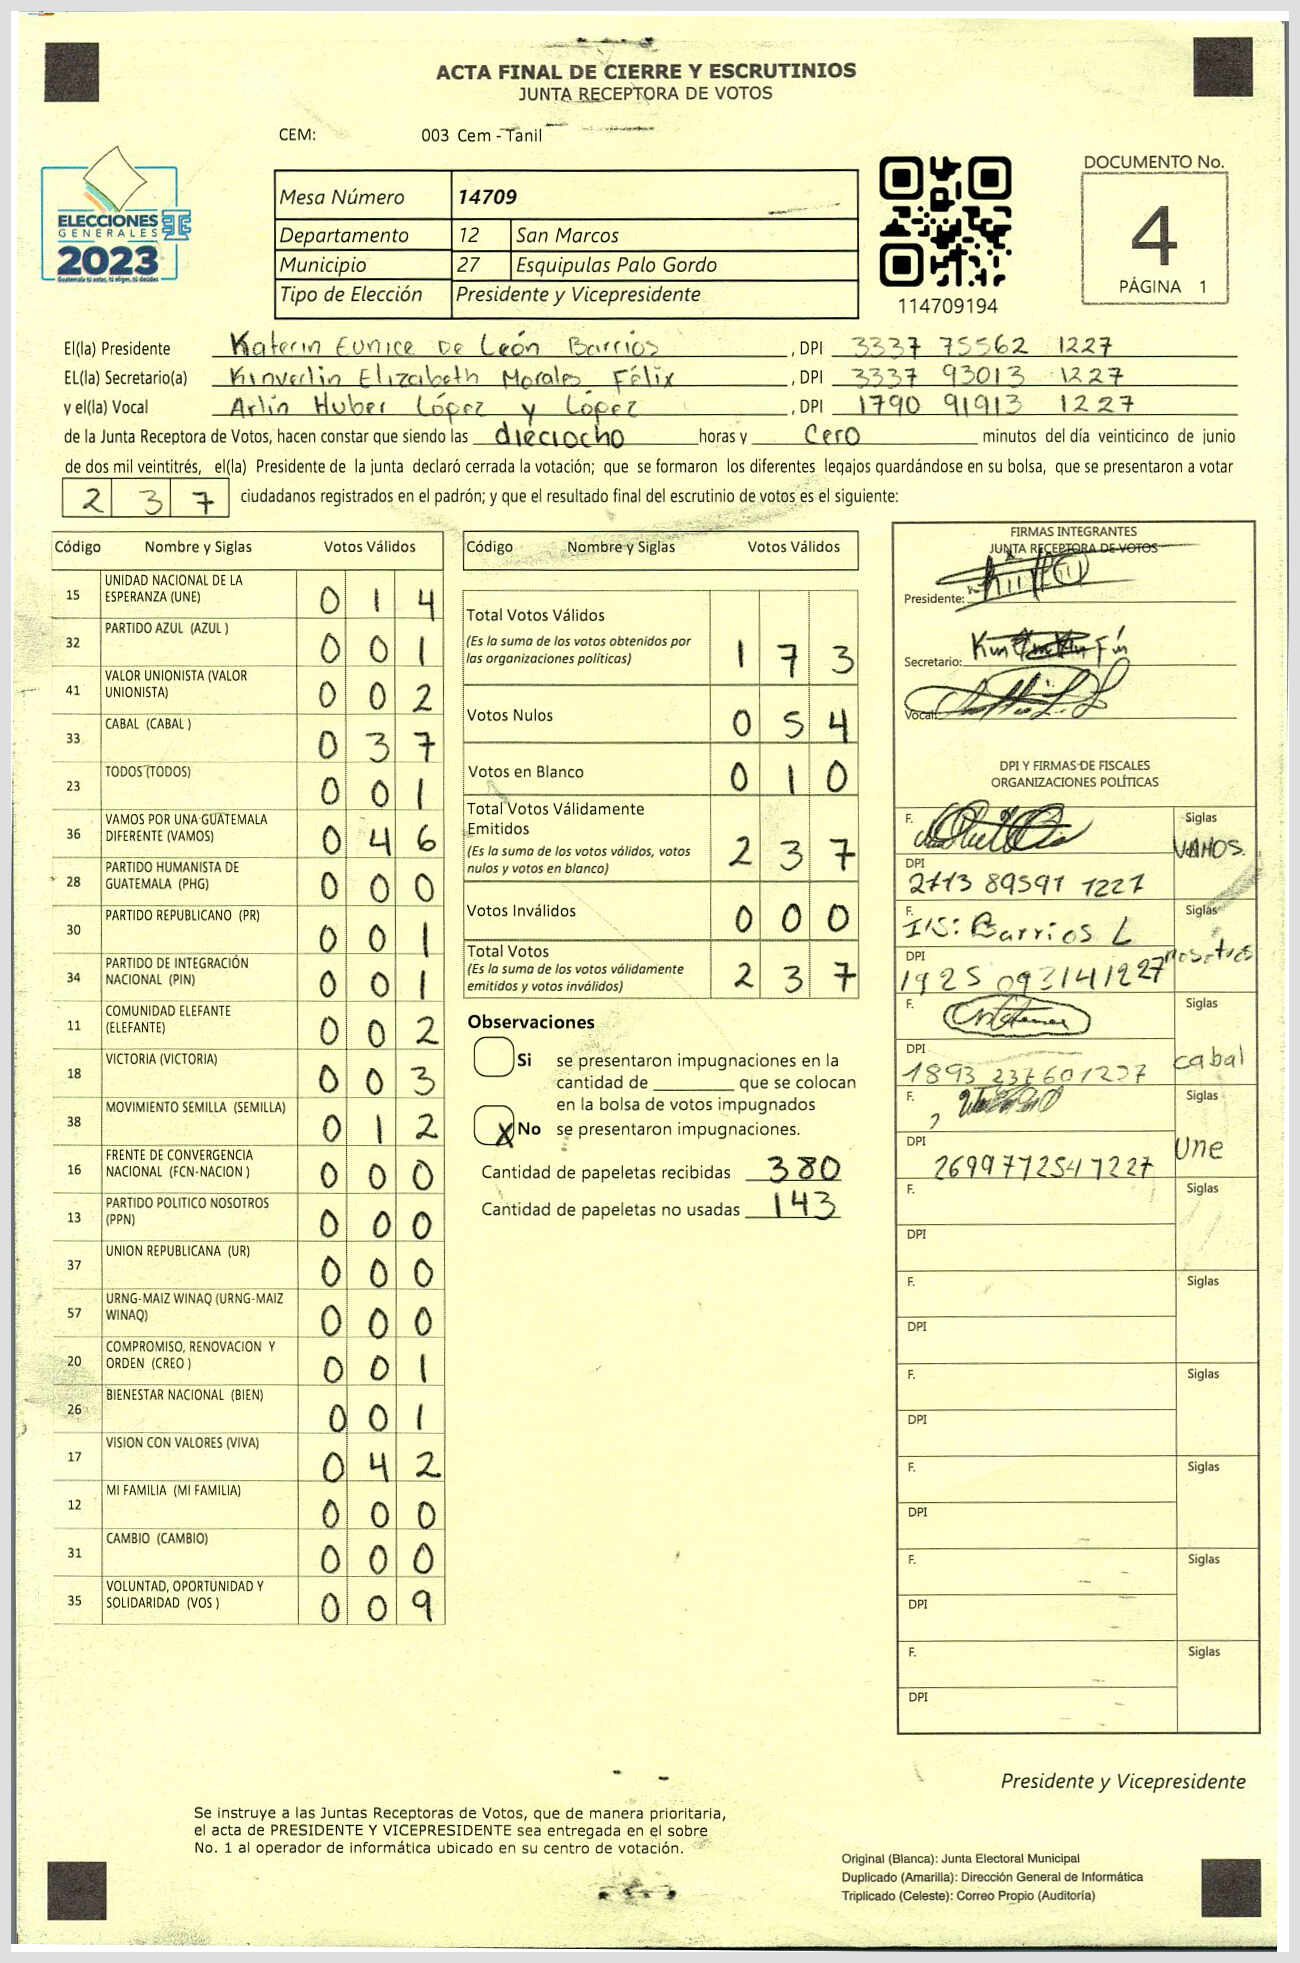 ACTA FINAL DE CIERRE Y ESCRUTINIOS
JUNTA RECEPTORA DE VOTOS
CEM: 003 Cem - Tanil
ELECCIONES
GENERALES
2023
Guatemala tú votas, tú eliges, tú decides
Mesa Número 14709
Departamento 12 San Marcos
Municipio 27 Esquipulas Palo Gordo
Tipo de Elección Presidente y Vicepresidente
114709194
DOCUMENTO No.
4
PÁGINA 1
El(la) Presidente Katerin Eunice De León Barrios, DPI 3337 75562 1227
EL(la) Secretario(a) Kinverlin Elizabeth Morales Félix, DPI 3337 93013 1227
y el(la) Vocal Arlin Huber López y López, DPI 1790 91913 1227
de la Junta Receptora de Votos, hacen constar que siendo las dieciocho horas y cero minutos del día veinticinco de junio
de dos mil veintitrés, el(la) Presidente de la junta declaró cerrada la votación; que se formaron los diferentes legajos guardándose en su bolsa, que se presentaron a votar
2 3 7 ciudadanos registrados en el padrón; y que el resultado final del escrutinio de votos es el siguiente:
Código Nombre y Siglas Votos Válidos
15 UNIDAD NACIONAL DE LA
ESPERANZA (UNE) 0 1 4
32 PARTIDO AZUL (AZUL ) 0 0 1
41 VALOR UNIONISTA (VALOR
UNIONISTA) 0 0 2
33 CABAL (CABAL ) 0 3 7
23 TODOS (TODOS) 0 0 1
36 VAMOS POR UNA GUATEMALA
DIFERENTE (VAMOS) 0 4 6
28 PARTIDO HUMANISTA DE
GUATEMALA (PHG) 0 0 0
30 PARTIDO REPUBLICANO (PR) 0 0 1
34 PARTIDO DE INTEGRACIÓN
NACIONAL (PIN) 0 0 1
11 COMUNIDAD ELEFANTE
(ELEFANTE) 0 0 2
18 VICTORIA (VICTORIA) 0 0 3
38 MOVIMIENTO SEMILLA (SEMILLA) 0 1 2
16 FRENTE DE CONVERGENCIA
NACIONAL (FCN-NACION ) 0 0 0
13 PARTIDO POLITICO NOSOTROS
(PPN) 0 0 0
37 UNION REPUBLICANA (UR) 0 0 0
57 URNG-MAIZ WINAQ (URNG-MAIZ
WINAQ) 0 0 0
20 COMPROMISO, RENOVACION Y
ORDEN (CREO ) 0 0 1
26 BIENESTAR NACIONAL (BIEN) 0 0 1
17 VISION CON VALORES (VIVA) 0 4 2
12 MI FAMILIA (MI FAMILIA) 0 0 0
31 CAMBIO (CAMBIO) 0 0 0
35 VOLUNTAD, OPORTUNIDAD Y
SOLIDARIDAD (VOS ) 0 0 9
Código Nombre y Siglas Votos Válidos
Total Votos Válidos
(Es la suma de los votos obtenidos por
las organizaciones políticas) 1 7 3
Votos Nulos 0 5 4
Votos en Blanco 0 1 0
Total Votos Válidamente
Emitidos
(Es la suma de los votos válidos, votos
nulos y votos en blanco) 2 3 7
Votos Inválidos 0 0 0
Total Votos
(Es la suma de los votos válidamente
emitidos y votos inválidos) 2 3 7
Observaciones
Si se presentaron impugnaciones en la
cantidad de ________ que se colocan
en la bolsa de votos impugnados
X No se presentaron impugnaciones.
Cantidad de papeletas recibidas 380
Cantidad de papeletas no usadas 143
FIRMAS INTEGRANTES
JUNTA RECEPTORA DE VOTOS
Presidente:
Secretario:
Vocal:
DPI Y FIRMAS DE FISCALES
ORGANIZACIONES POLÍTICAS
F. Siglas
VAMOS.
DPI
2713 89591 1227
F. Barrios L Siglas
nosotros
DPI
1925 093141227
F. Siglas
cabal
DPI
1893 237601227
F. Siglas
Une
DPI
2699772547227
F. Siglas
DPI
F. Siglas
DPI
F. Siglas
DPI
F. Siglas
DPI
F. Siglas
DPI
F. Siglas
DPI
Presidente y Vicepresidente
Se instruye a las Juntas Receptoras de Votos, que de manera prioritaria,
el acta de PRESIDENTE Y VICEPRESIDENTE sea entregada en el sobre
No. 1 al operador de informática ubicado en su centro de votación.
Original (Blanca): Junta Electoral Municipal
Duplicado (Amarilla): Dirección General de Informática
Triplicado (Celeste): Correo Propio (Auditoría)